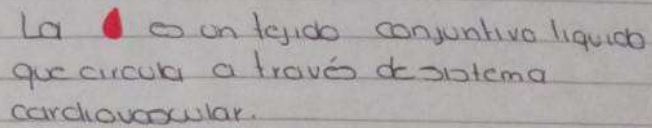 La es un tejido conjuntivo liquido
que circula a través de sistema
cardiovascular.